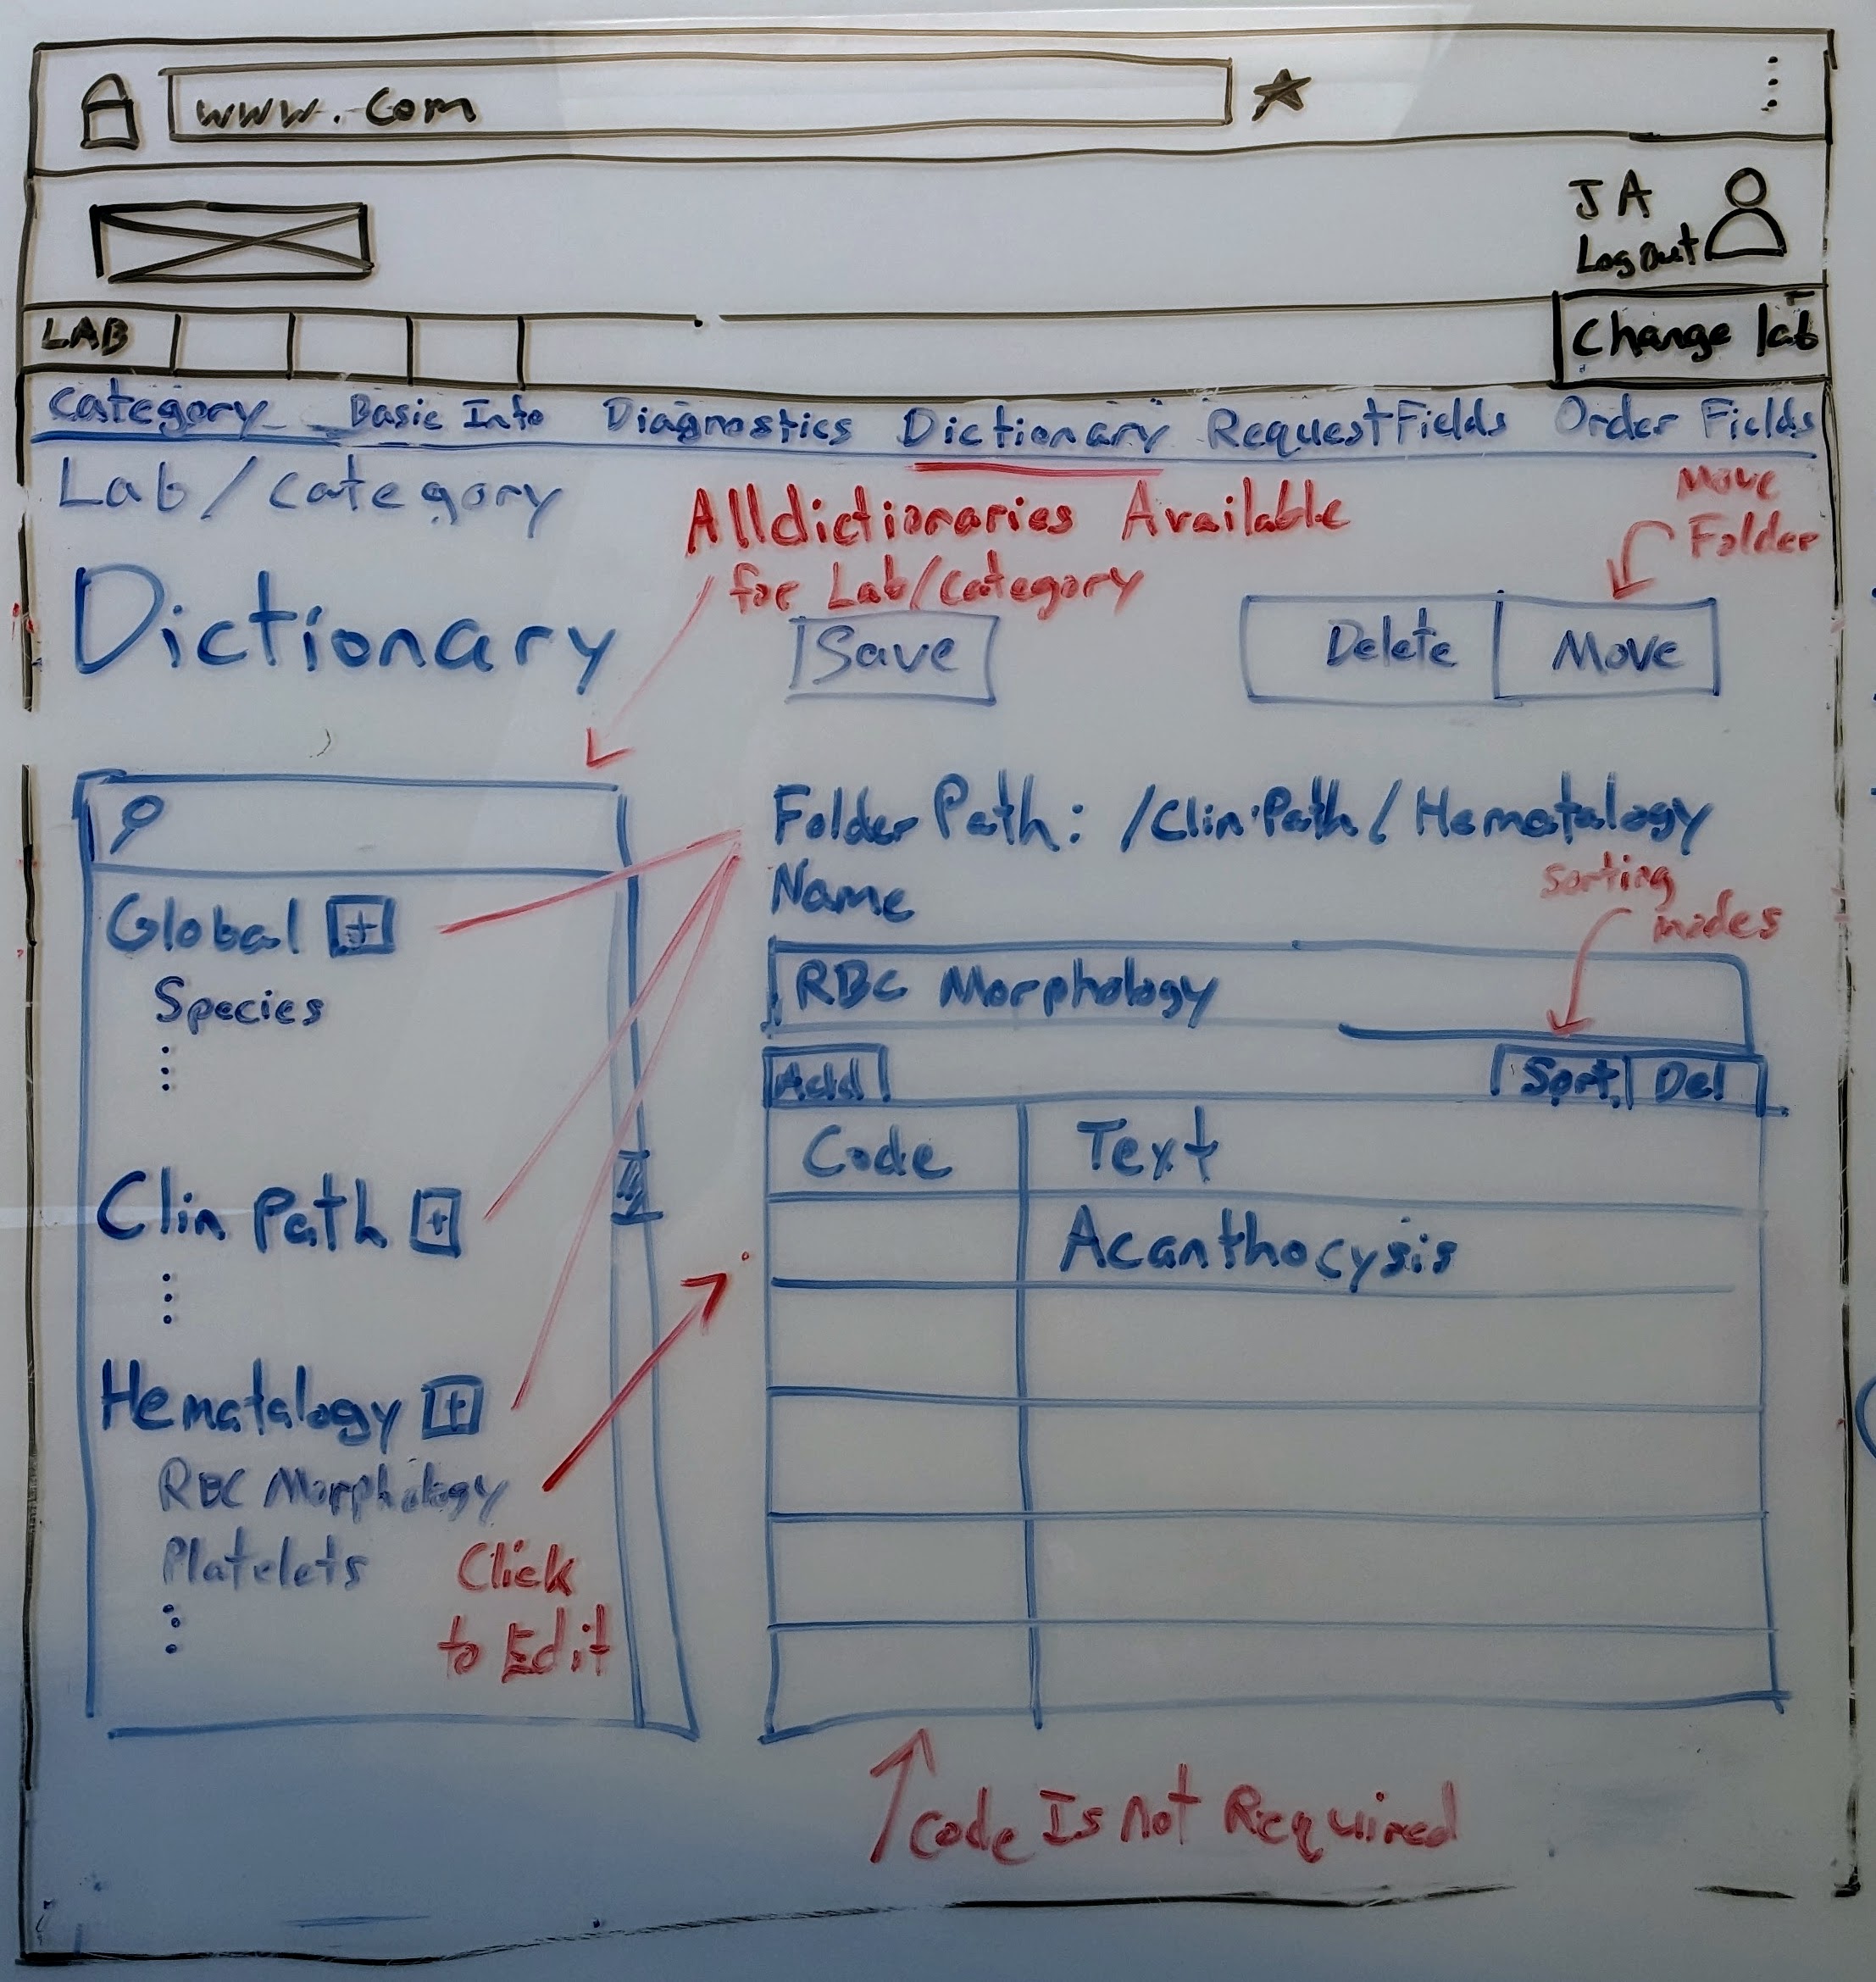 www.com
JA
Logout
LAB
Change lab
Category Basic Info Diagnostics Dictionary Request Fields Order Fields
Lab/Category
All dictionaries Available
for Lab/Category
Move
Folder
Dictionary
Save
Delete Move
Folder Path: /Clin Path/Hematalogy
Name
Sorting
modes
RBC Morphology
Add Sort Del
Code Text
Acanthocysis
Global +
Species
Clin Path +
Hematalogy +
RBC Morphology
Platelets
Click
to Edit
Code Is not Required